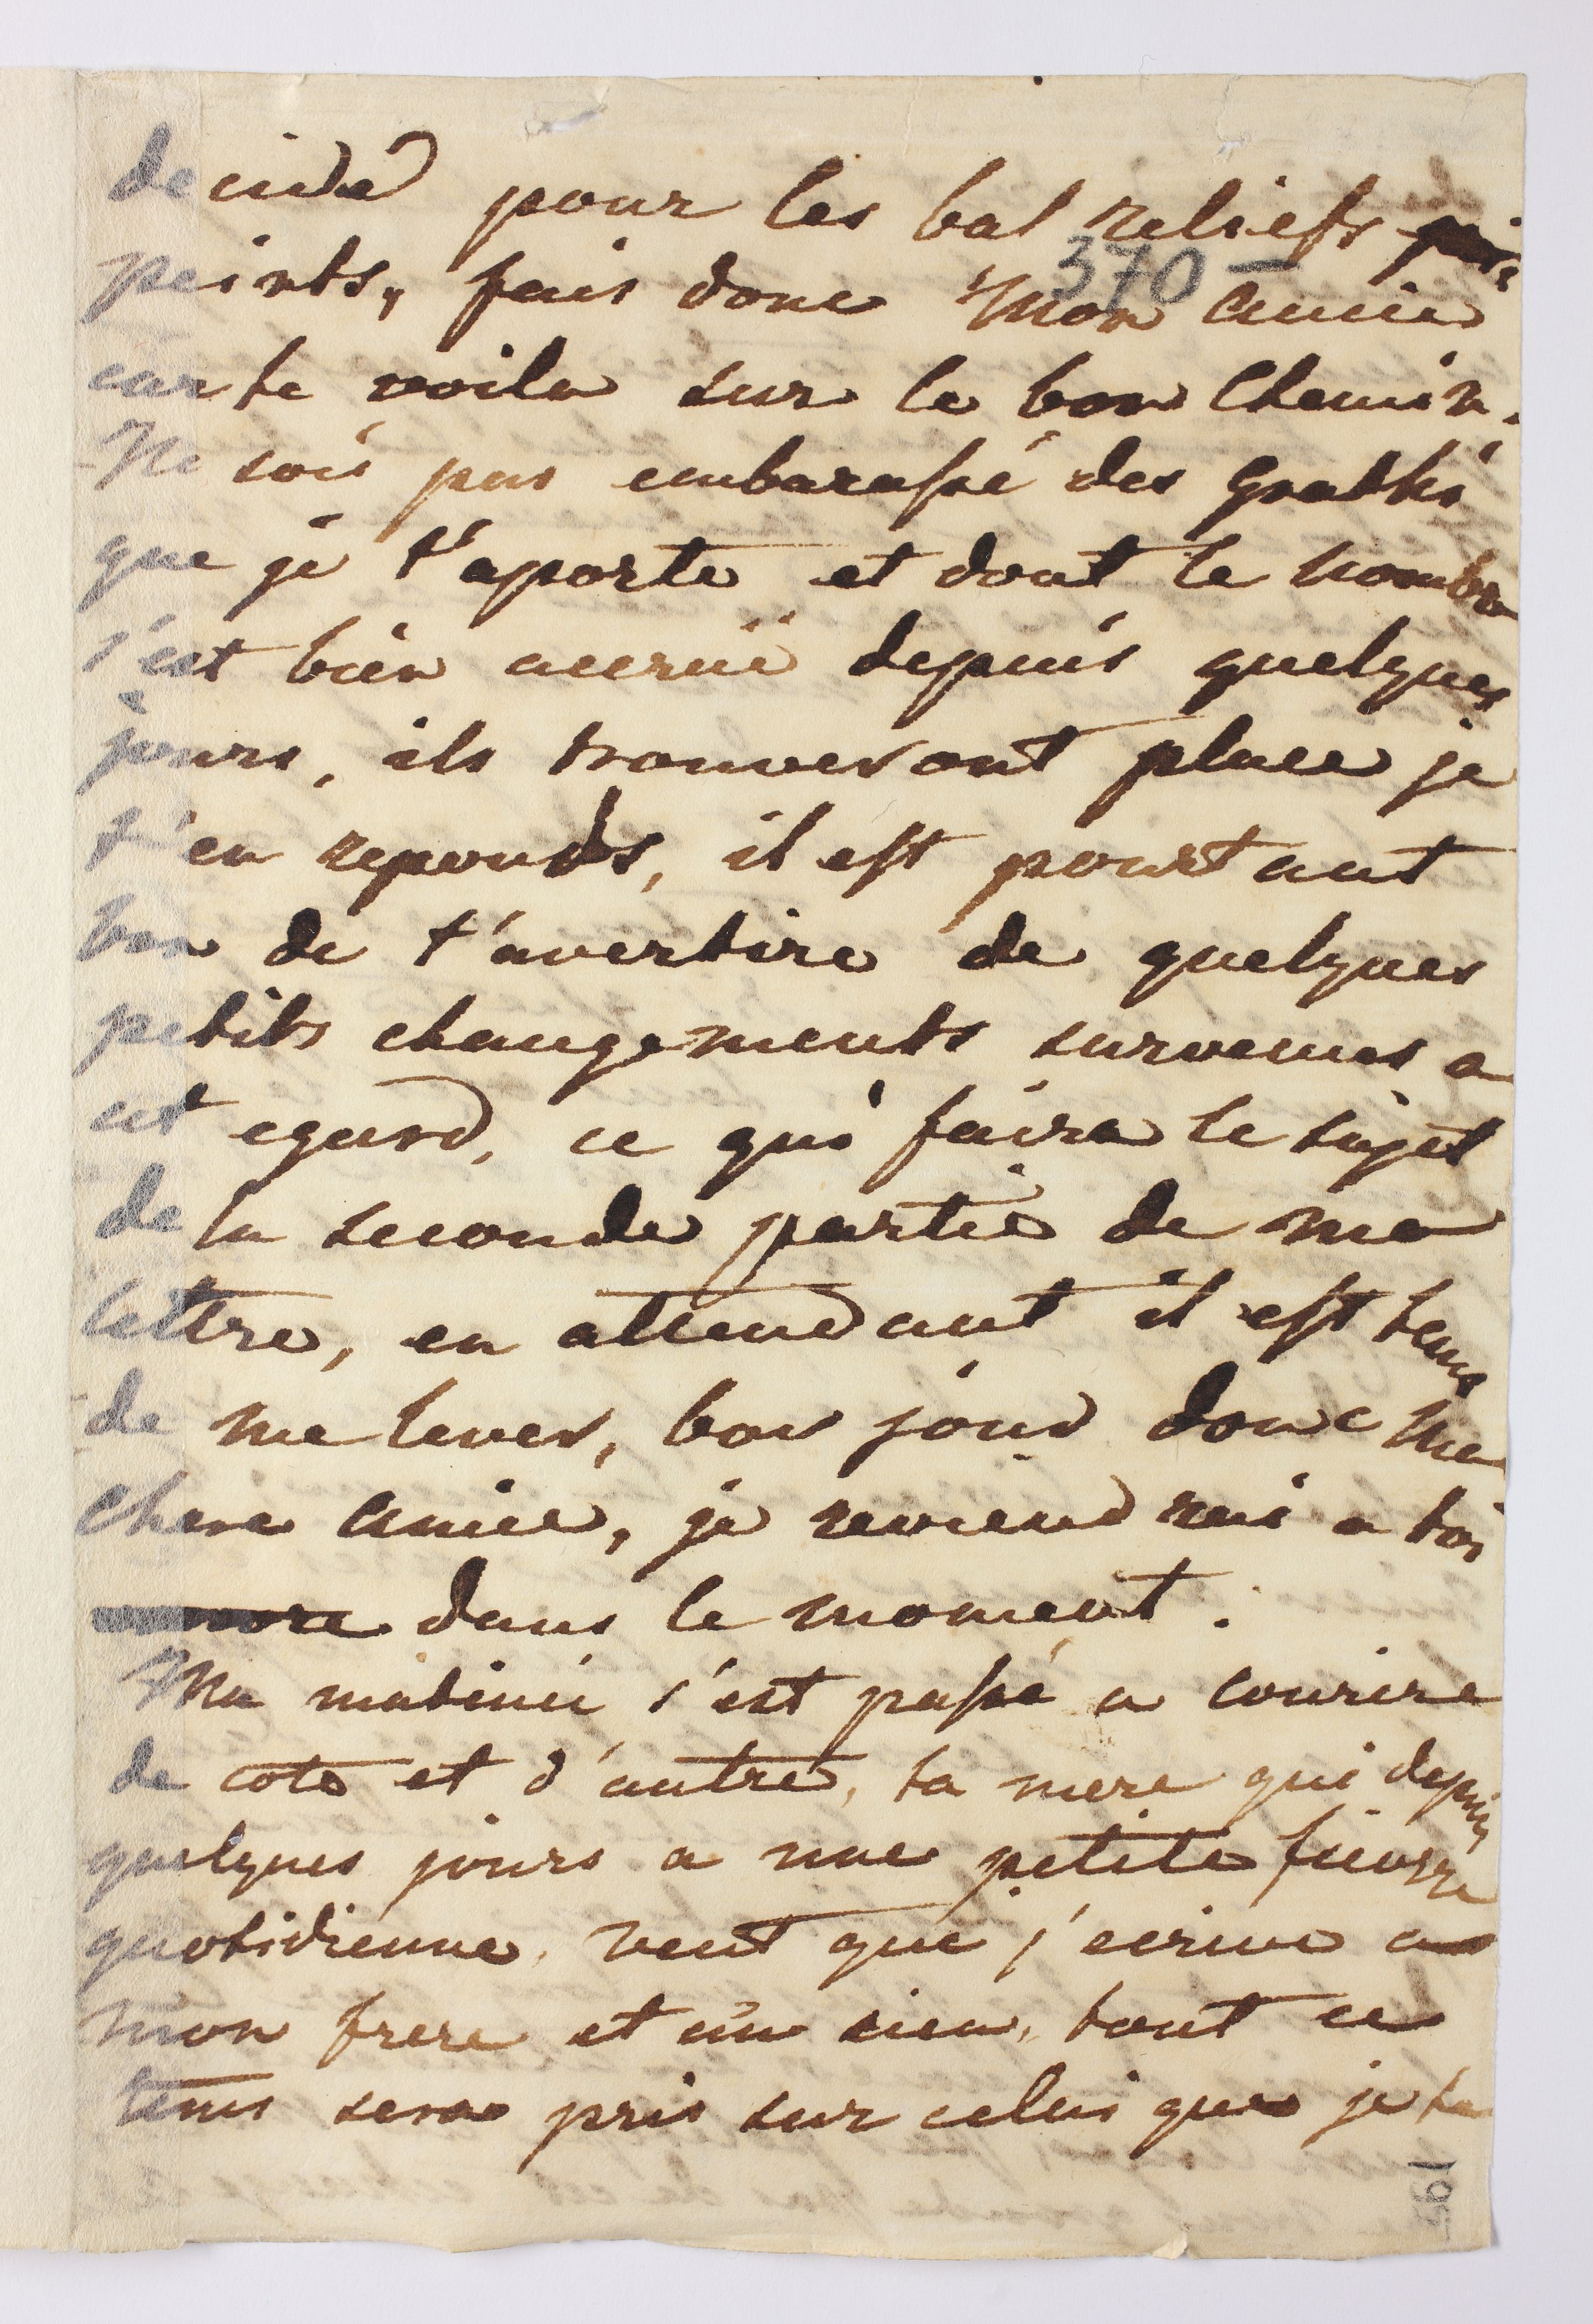 decidé pour les bas reliefs
370
peints, fais donc Mon Amie
car te voila sur le bon Chemin.
Ne sois pas embarassé des Gnathis
que je t'aporte et dont le nombre
s'est bien accruë depuis quelques
jours, ils trouveront place je
t'en reponds, il est pourtant
bon de t'avertire de quelques
petits changements survenus a
cet egard, ce qui faira le sujet
de la seconde partie de ma
lettre, en attendant il est tems
de me lever, bon jour donc ma
chere Amie, je reviendrai a toi
dans le moment.
Ma matinée s'est passé a courire
de coté et d'autre, ta mere qui depuis
quelques jours a une petite fievre
quotidienne, veut que j'ecrive a
mon frere et au sien, tout ce
tems sera pris sur celui que je te
195